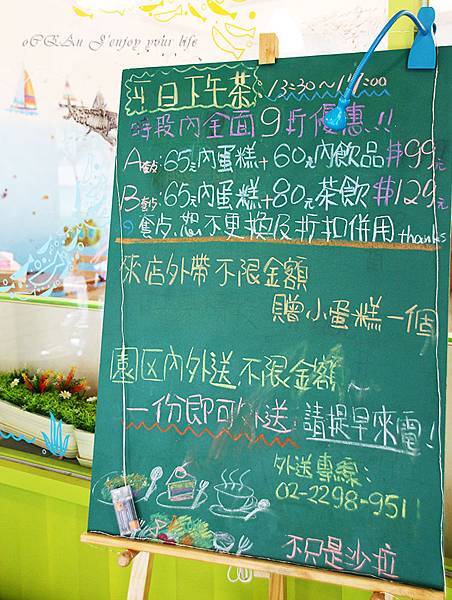 oCEAn I'enjoy your life
日下午茶: 13:30~17:00
時段內全面9折優惠!!
A套餐: 65元內蛋糕+60元內飲品 #99元
B套餐: 65元內蛋糕+80元茶飲 #129元
套餐,恕不更換及折扣併用 thanks
來店外帶不限金額
贈小蛋糕一個
園区內外送,不限金額~
一份即可外送,請提早來電!
外送專線:
02-2298-9511
不只是沙拉